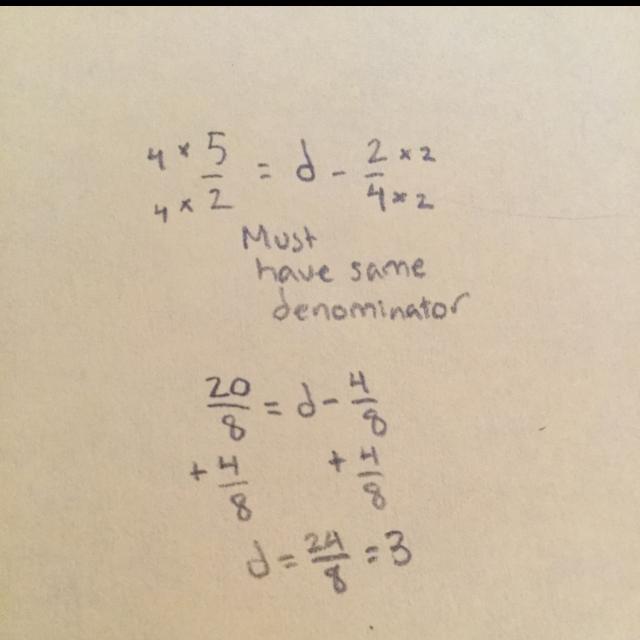 4 × 5/2 = d - 2/4 × 2
4 × × 2
Must
have same
denominator
20/8 = d - 4/8
+ 4/8 + 4/8
d = 24/8 = 3